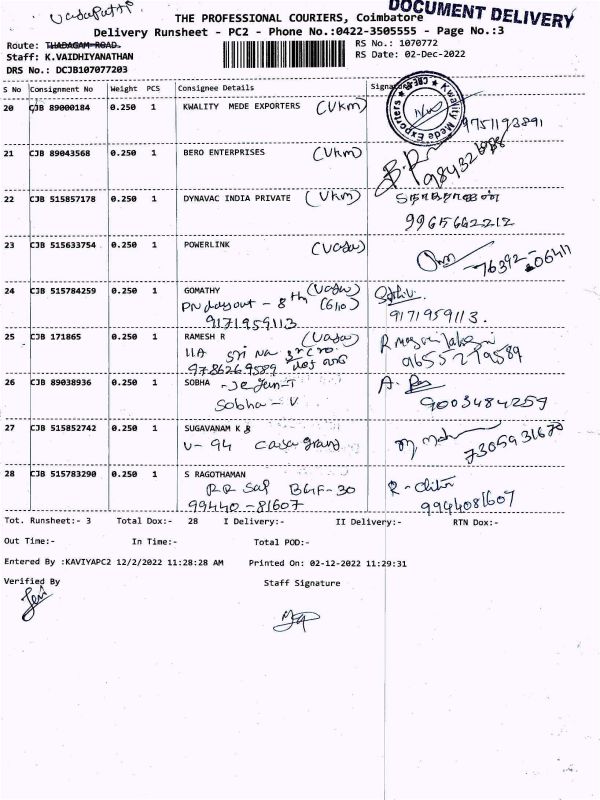 Vadapatti.
DOCUMENT DELIVERY
THE PROFESSIONAL COURIERS, Coimbatore
Delivery Runsheet - PC2 - Phone No.:0422-3505555 - Page No.:3
Route: THADAGAM ROAD.
RS No.: 1070772
Staff: K.VAIDHIYANATHAN
RS Date: 02-Dec-2022
DRS No.: DCJB107077203
S No Consignment No Weight PCS Consignee Details Signature
20 CJB 89000184 0.250 1 KWALITY MEDE EXPORTERS (Vkm)
Kwality Mede Exporters CBE
9751193891
21 CJB 89043568 0.250 1 BERO ENTERPRISES (Vkm)
22 CJB 515857178 0.250 1 DYNAVAC INDIA PRIVATE (Vkm)
9965642212
23 CJB 515633754 0.250 1 POWERLINK (Vada)
76392-06411
24 CJB 515784259 0.250 1 GOMATHY (Vada)
PN Layout - 8th (610)
9171959113 9171959113.
25 CJB 171865 0.250 1 RAMESH R (Vada)
11A Sri
9786269589 9655279589
26 CJB 89038936 0.250 1 SOBHA
Sobha - V 9003484259
27 CJB 515852742 0.250 1 SUGAVANAM K S
V- 94 Casa grand 7305931670
28 CJB 515783290 0.250 1 S RAGOTHAMAN
99440-81607 9944081607
Tot. Runsheet:- 3 Total Dox:- 28 I Delivery:- II Delivery:- RTN Dox:-
Out Time:- In Time:- Total POD:-
Entered By :KAVIYAPC2 12/2/2022 11:28:28 AM Printed On: 02-12-2022 11:29:31
Verified By Staff Signature